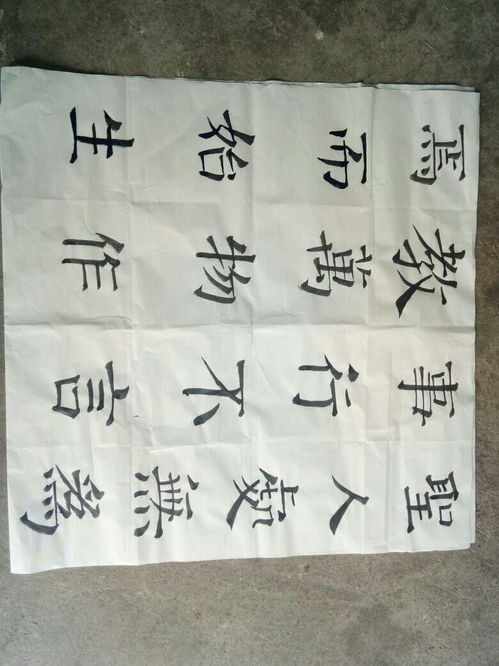 聖人處無爲
事行不言
教萬物作
焉而始生